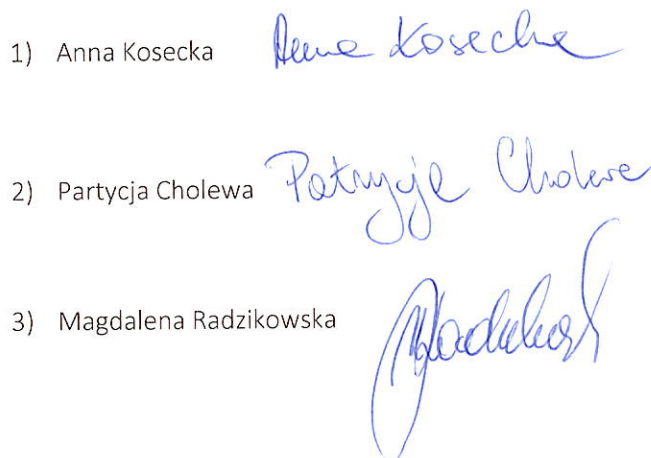 1) Anna Kosecka Anna Kosecka
2) Partycja Cholewa Patrycja Cholewa
3) Magdalena Radzikowska